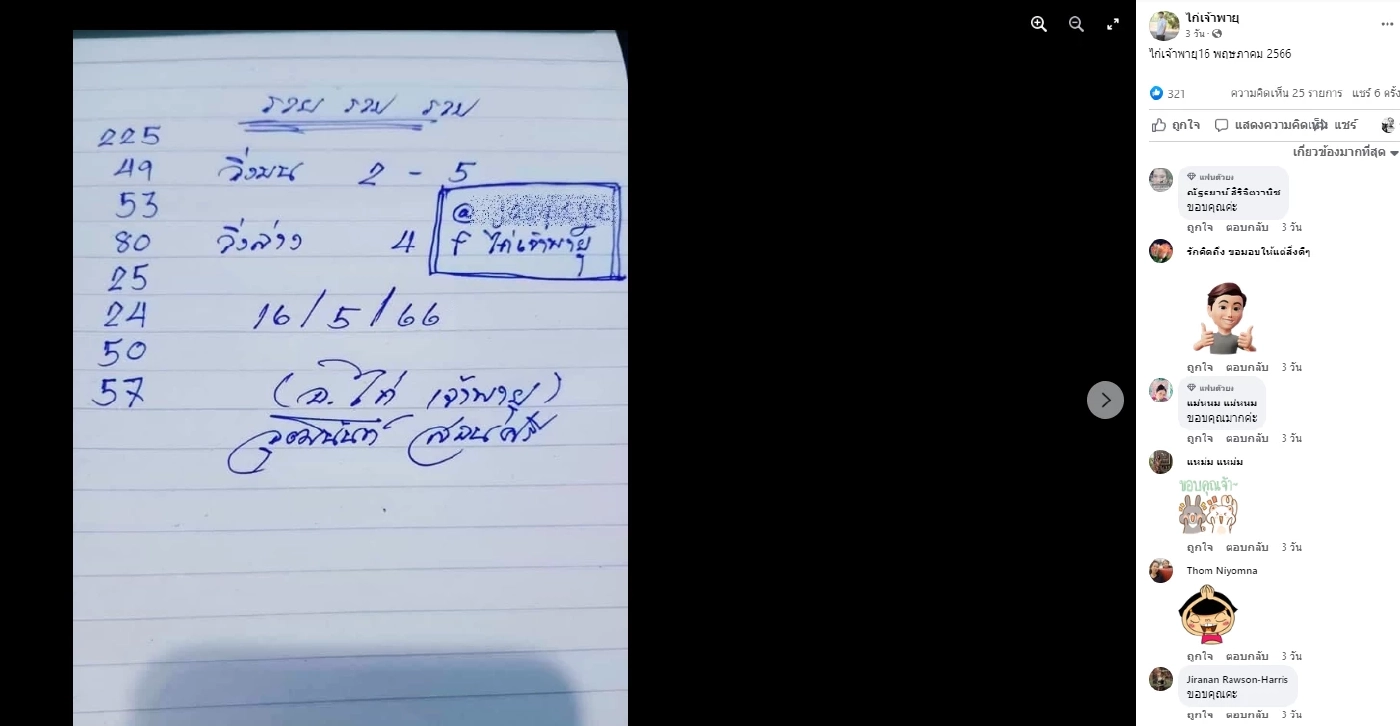 รวย รวย รวย
225
49 วิ่งบน 2 - 5
53
@
80 วิ่งล่าง 4
f ไก่เจ้าพายุ
25
24 16/5/66
50
57 (อ. ไก่ เจ้าพายุ)
ไก่เจ้าพายุ
3 วัน ·
ไก่เจ้าพายุ16 พฤษภาคม 2566
321 ความคิดเห็น 25 รายการ แชร์ 6 ครั้ง
ถูกใจ แสดงความคิดเห็น แชร์
เกี่ยวข้องมากที่สุด
แฟนตัวยง
ขอบคุณค่ะ
ถูกใจ ตอบกลับ 3 วัน
รักคิดถึง ขอมอบให้แต่สิ่งดีๆ
ถูกใจ ตอบกลับ 3 วัน
แฟนตัวยง
แม่หนม แม่หนม
ขอบคุณมากค่ะ
ถูกใจ ตอบกลับ 3 วัน
แหม่ม แหม่ม
ขอบคุณจ้า~
ถูกใจ ตอบกลับ 3 วัน
Thom Niyomna
ถูกใจ ตอบกลับ 3 วัน
Jiranan Rawson-Harris
ขอบคุณคะ
ถูกใจ ตอบกลับ 3 วัน